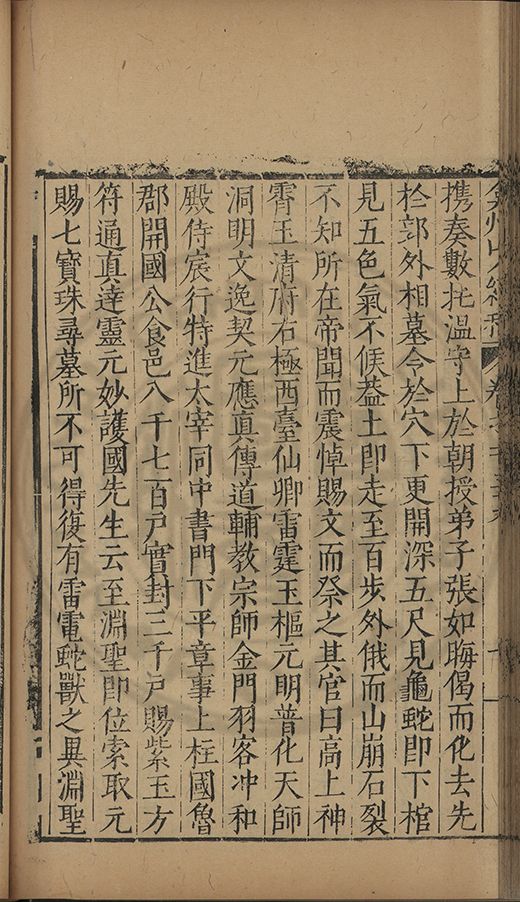 弇州山人續稿 卷六十
携奏數托溫守上於朝授弟子張如晦偈而化去先
於郭外相墓令於穴下更開深五尺見龜蛇即下棺
見五色氣不候葢土即走至百步外俄而山崩石裂
不知所在帝聞而震悼賜文而祭之其官曰高上神
霄玉清府右極西臺仙卿雷霆玉樞元明普化天師
洞明文逸契元應真傳道輔教宗師金門羽客冲和
殿侍宸行特進太宰同中書門下平章事上柱國魯
郡開國公食邑八千七百戶實封三千戶賜紫玉方
符通真達靈元妙護國先生云至淵聖即位索取元
賜七寶珠尋墓所不可得復有雷電蛇獸之異淵聖